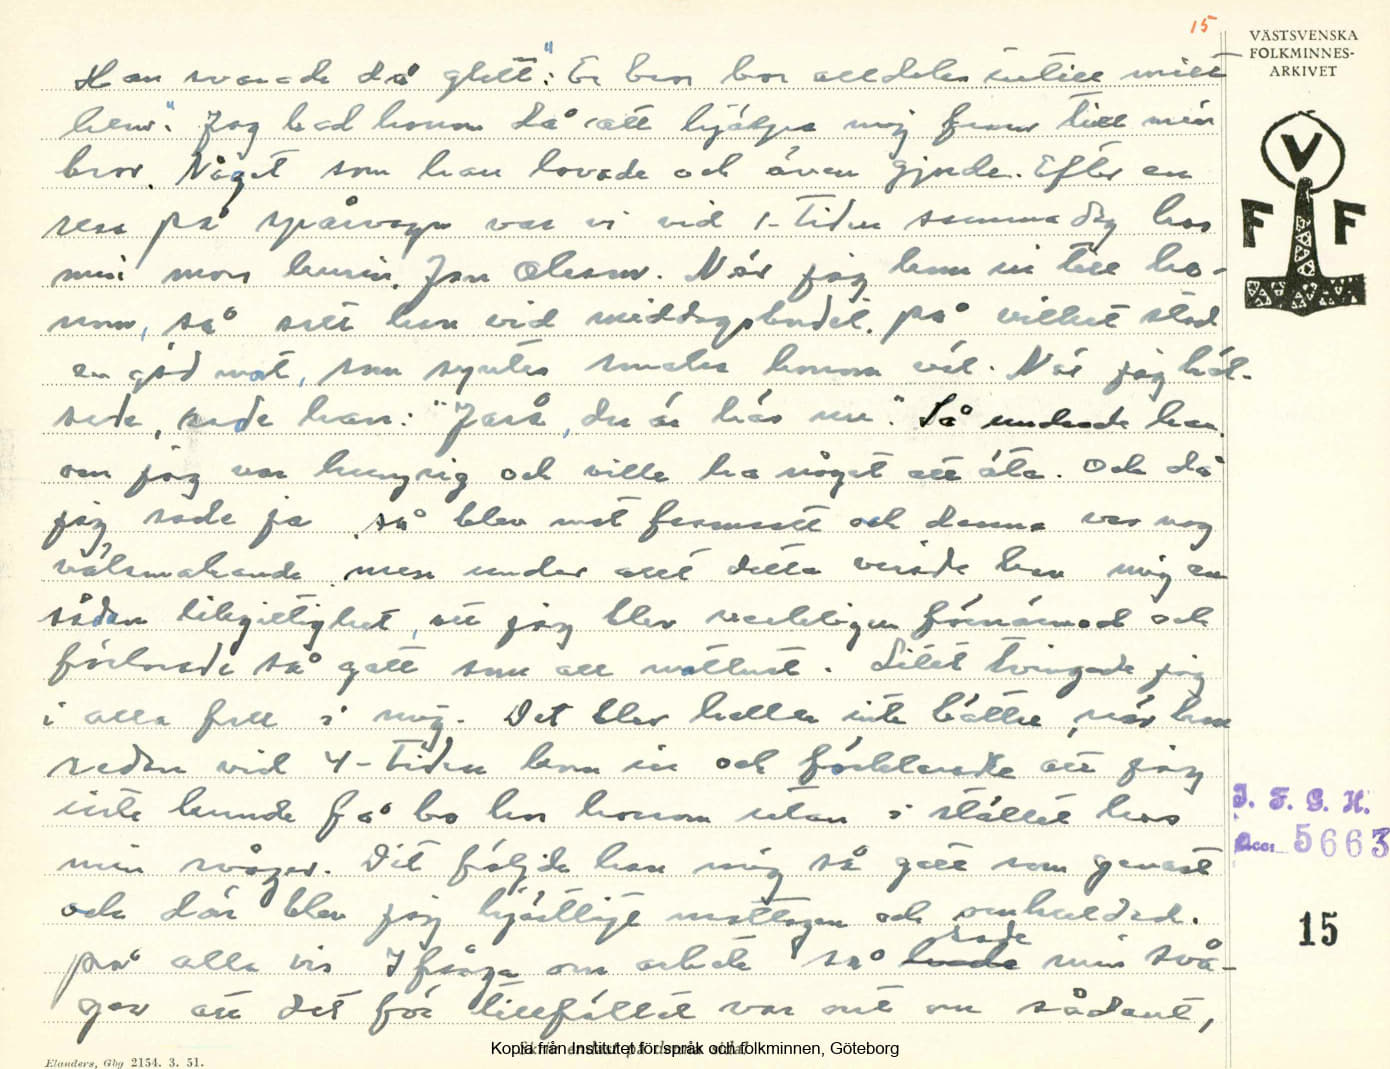 15
VÄSTSVENSKA
FOLKMINNES-
ARKIVET
V
F F
Han svarade då glatt: "Er bror bor alldeles intill mitt
hem." Jag bad honom då att hjälpa mig fram till min
bror. Något som han lovade och även gjorde. Efter en
resa på spårvagn var vi vid 1-tiden samma dag hos
min mors kusin, Jan Olsson. När jag kom in till ho-
nom, så satt han vid middagsbordet, på vilket stod
en god mat, som syntes smaka honom väl. När jag häl-
sade, sade han: "Jaså, du är här nu". Så undrade han,
om jag var hungrig och ville ha något att äta. Och då
jag sade ja, så blev mat framsatt och denna var nog
välsmakande, men under allt detta visade han mig en
sådan likgiltighet, att jag blev verkligen förnärmad och
förlorade så gott som all matlust. Litet tvingade jag
i alla fall i mig. Det blev heller inte bättre, när han
redan vid 4-tiden kom in och förklarade att jag
inte kunde få bo hos honom utan i stället hos
min svåger. Dit följde han mig så gott som genast
och där blev jag hjärtligt mottagen och omhuldad.
på alla vis I fråga om arbete så sade min svå-
ger att det för tillfället var ont om sådant,
I. F. G. H.
Acc. 5663
15
Elanders, Gbg 2154. 3. 51.
Kopia från Institutet för språk och folkminnen, Göteborg